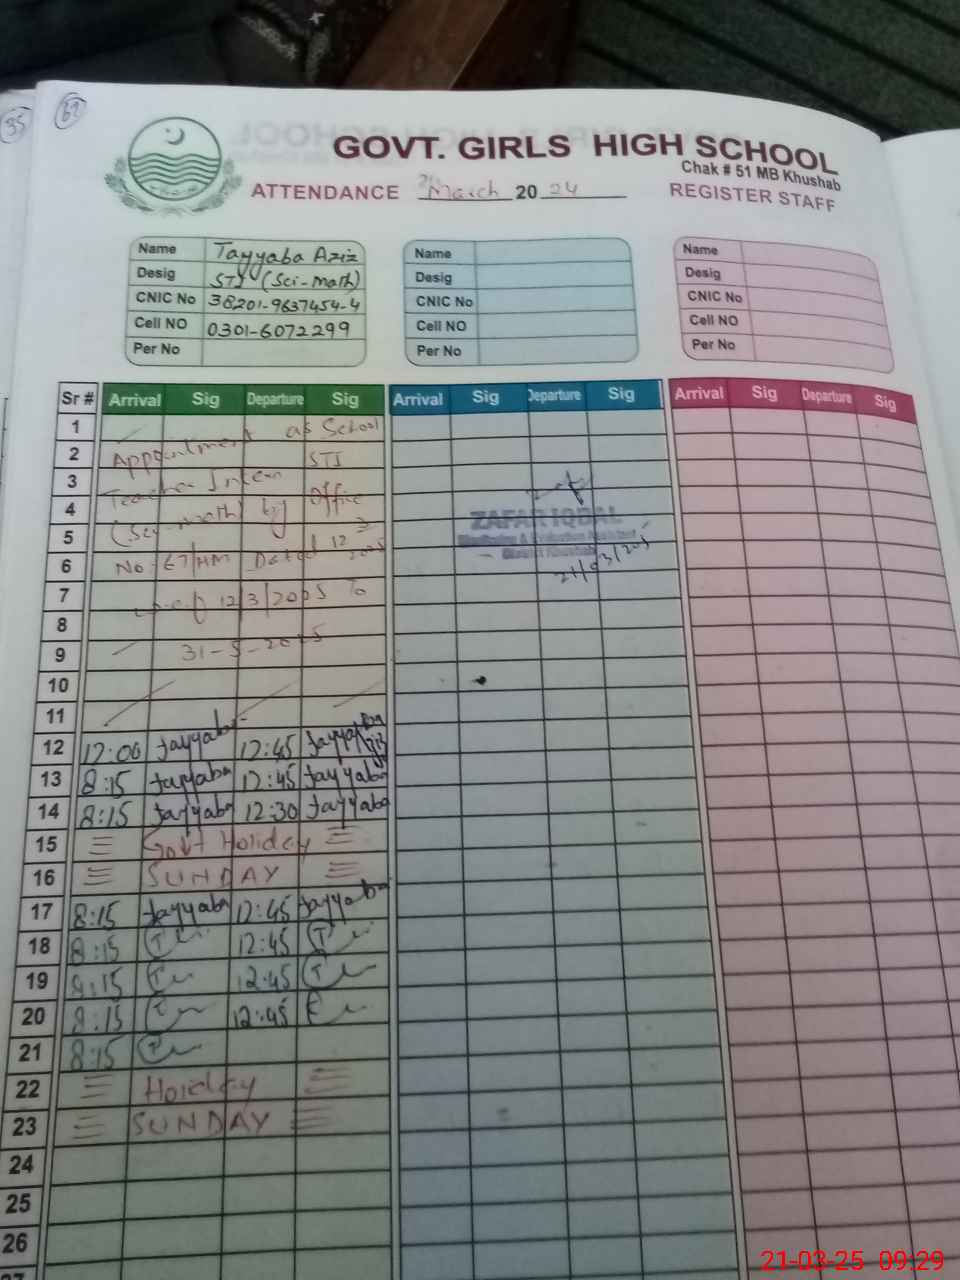 35
62
GOVT. GIRLS HIGH SCHOOL
Chak # 51 MB Khushab
ATTENDANCE March 20 24 REGISTER STAFF
Name Tayyaba Aziz
Desig STI (Sci-math)
CNIC No 38201-9637454-4
Cell NO 0301-6072299
Per No
Name
Desig
CNIC No
Cell NO
Per No
Name
Desig
CNIC No
Cell NO
Per No
Sr # Arrival Sig Departure Sig Arrival Sig Departure Sig Arrival Sig Departure Sig
1
2 Appointment as School
3 STI
4 Teacher Intern
5 (Sci-math) by Office
6 No: 67/HM Dated 12 3 2025
7
8 w.e.f 12/3/2025 To
9 31-5-2025
10
11
12 12:00 Tayyaba 12:45 Tayyaba Aziz
13 8:15 Tayyaba 12:45 Tayyaba
14 8:15 Tayyaba 12:30 Tayyaba
15 Govt Holiday
16 SUNDAY
17 8:15 Tayyaba 12:45 Tayyaba
18 8:15 12:45
19 8:15 12:45
20 8:15 12:45
21 8:15
22 Holiday
23 SUNDAY
24
25
26
27
ZAFAR IQBAL
Monitoring & Evaluation Assistant
District Khushab
21/03/205
21-03-25 09:29